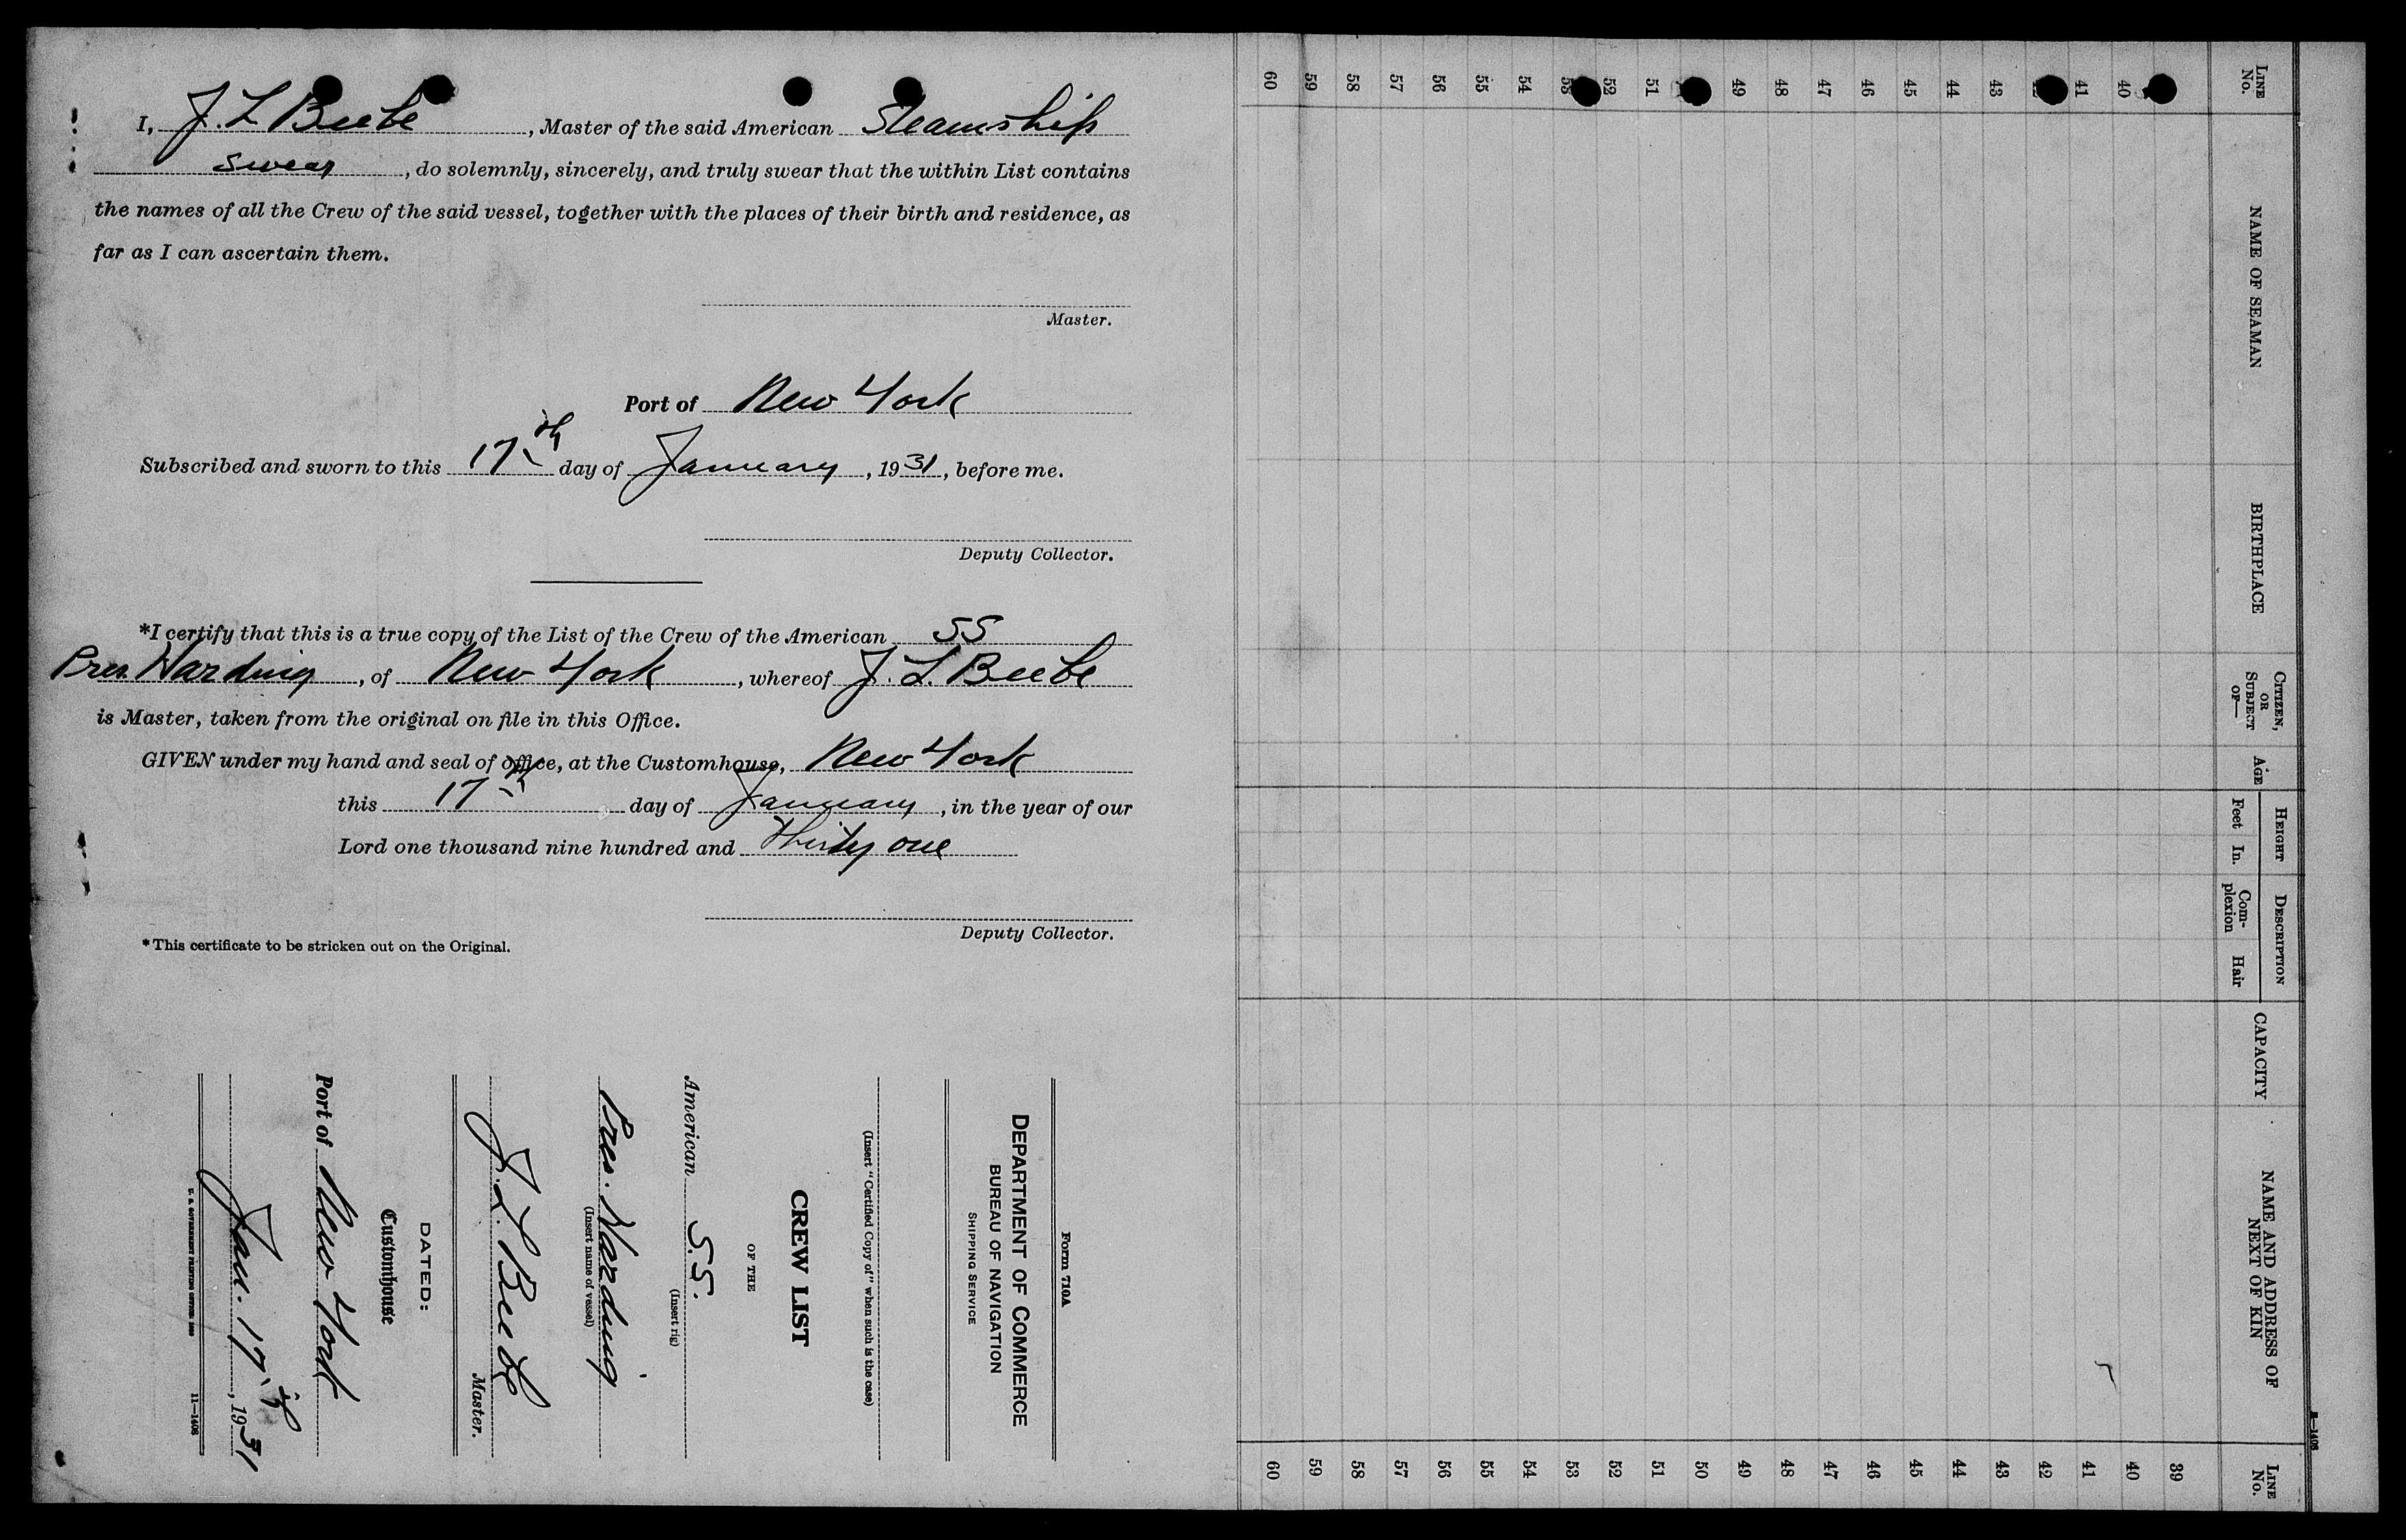 I, J. L Beebe, Master of the said American Steamship
swear, do solemnly, sincerely, and truly swear that the within List contains
the names of all the Crew of the said vessel, together with the places of their birth and residence, as
far as I can ascertain them.
Master.
Port of New York
Subscribed and sworn to this 17th day of January, 1931, before me.
Deputy Collector.
*I certify that this is a true copy of the List of the Crew of the American SS
Pres. Harding, of New York, whereof J. L. Beebe
is Master, taken from the original on file in this Office.
GIVEN under my hand and seal of office, at the Customhouse, New York
this 17th day of January, in the year of our
Lord one thousand nine hundred and Thirty one
Deputy Collector.
*This certificate to be stricken out on the Original.
Form 710A
DEPARTMENT OF COMMERCE
BUREAU OF NAVIGATION
SHIPPING SERVICE
(Insert "Certified Copy of" when such is the case)
CREW LIST
OF THE
American S.S.
(Insert rig)
Pres. Harding
(Insert name of vessel)
J. L. Beebe
Master.
DATED:
Customhouse
Port of New York
Jan. 17th, 1931
U. S. GOVERNMENT PRINTING OFFICE: 11—1408
LINE No.
NAME OF SEAMAN
BIRTHPLACE
CITIZEN, OR SUBJECT OF—
AGE
HEIGHT
Feet In.
DESCRIPTION
Complexion Hair
CAPACITY
NAME AND ADDRESS OF NEXT OF KIN
LINE No.
39
40 40
41 41
42
43 43
44 44
45 45
46 46
47 47
48 48
49 49
50
51 51
52 52
53 53
54 54
55 55
56 56
57 57
58 58
59 59
60 60